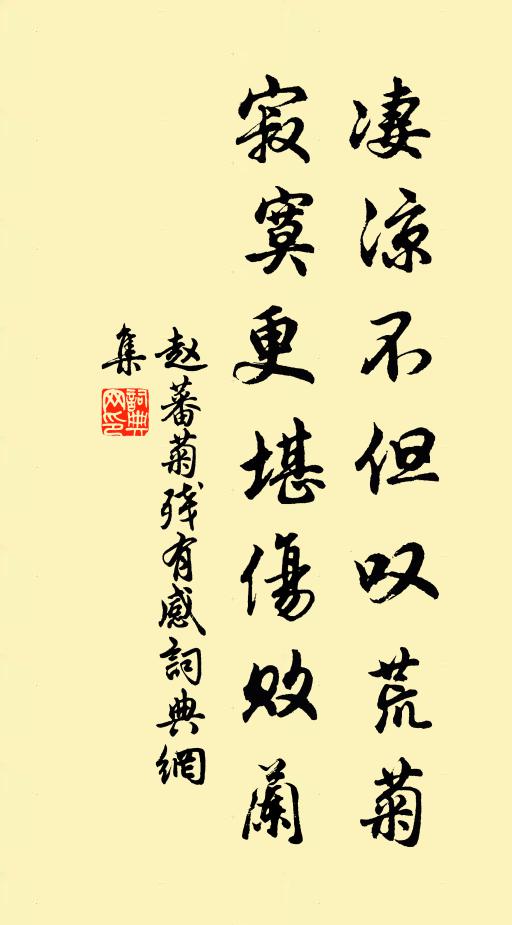 凄涼不但叹荒菊
寂寞更堪傷败蘭
赵蕃菊残有感詞典網
集
詞典網印